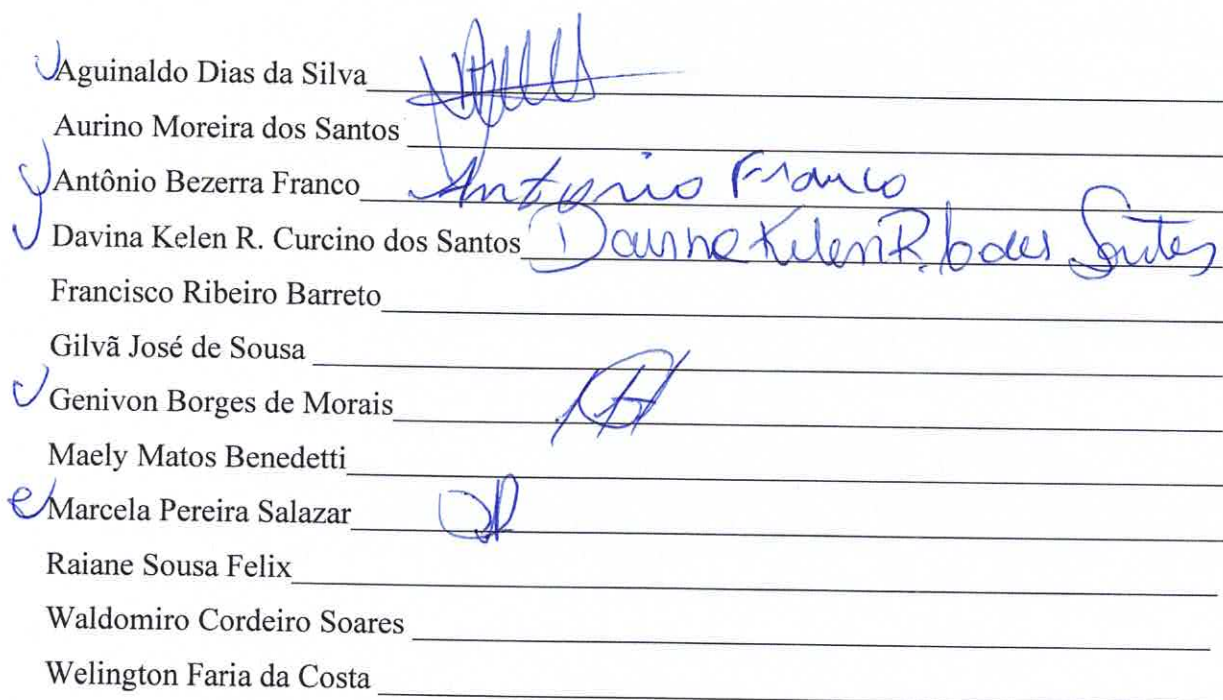 Aguinaldo Dias da Silva
Aurino Moreira dos Santos
Antônio Bezerra Franco Antonio Franco
Davina Kelen R. Curcino dos Santos Davina Kelen R. dos Santos
Francisco Ribeiro Barreto
Gilvã José de Sousa
Genivon Borges de Morais
Maely Matos Benedetti
Marcela Pereira Salazar
Raiane Sousa Felix
Waldomiro Cordeiro Soares
Welington Faria da Costa